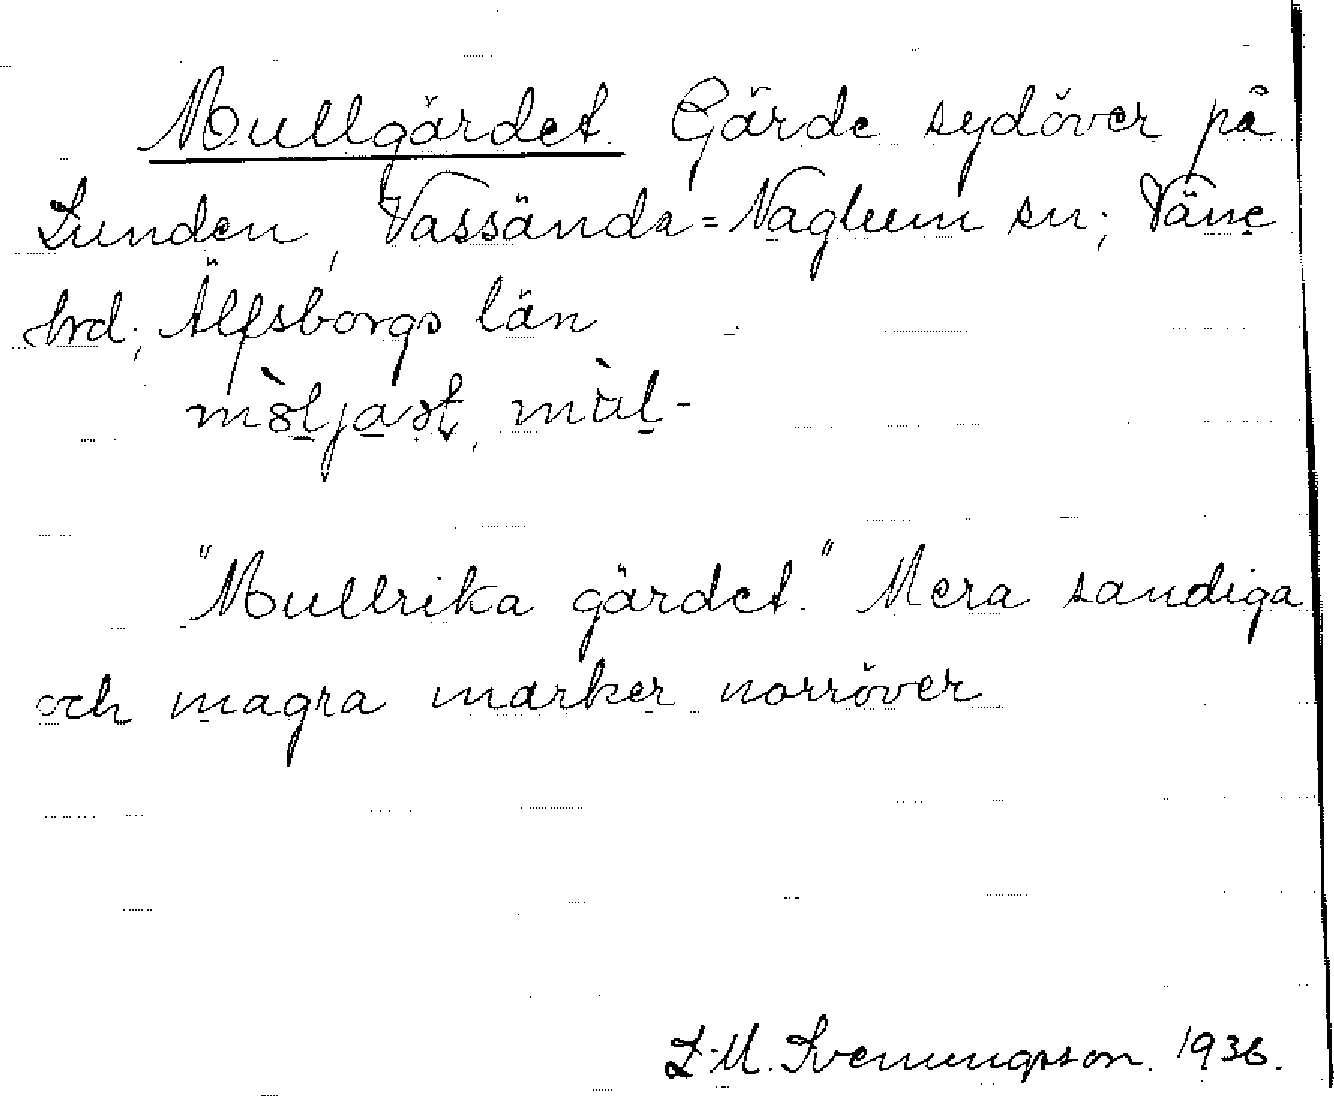 Mullgärdet. Gärde sydöver på
Lunden, Vassända=Naglum sn; Väne
hrd; Älfsborgs län
"Mullrika gärdet." Mera sandiga
och magra marker norröver
L-M. Svenungsson. 1936.